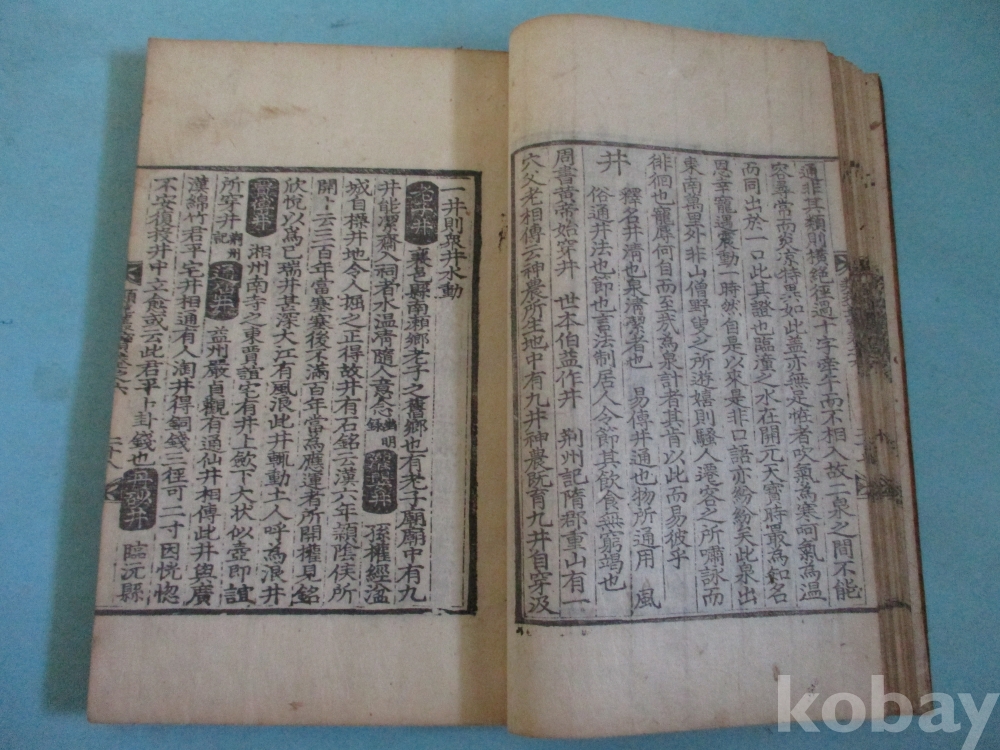 通非其類則橫絕徑過十字牽牛而不相入故二泉之間不能
容尋常而炎涼特異如此蓋亦無足怪者吹氣為寒呵氣為溫
而同出於一口此其證也臨潼之水在開元天寶時最為知名
恩幸寵遇震動一時然自是以來是非口語亦紛紛矣此泉出
東南萬里外非山僧野叟之所遊嬉則騷人遷客之所嘯詠而
徘徊也寵辱何自而至哉為泉計者其肯以此而易彼乎
井
釋名井清也泉清潔者也 易傳井通也物所通用 風
俗通井法也節也言法制居人令節其飲食無窮竭也
周書黃帝始穿井 世本伯益作井 荊州記隋郡重山有一
穴父老相傳云神農所生地中有九井神農既育九井自穿汲
一井則衆井水動
老子井 襄邑縣南湘鄉老子之舊鄉也有老子廟廟中有九
井能潔齋入祠者水溫清隨人意念 孫權經湓
城自標井地令人掘之正得故井有石銘云漢六年潁陰侯所
開卜云三百年當塞塞後不滿百年當為應運者所開權見銘
欣悅以為已瑞井甚深大江有風浪此井輒動土人呼為浪井
湘州南寺之東賈誼宅有井上斂下大狀似壺即誼
所穿井 荊州記 通仙井 益州嚴貞觀有通仙井相傳此井與廣
漢綿竹君平宅井相通有人淘井得銅錢三徑可二寸因恍惚
不安復投井中立愈或云此君平卜卦錢也 丹砂井 臨沅縣
kobay